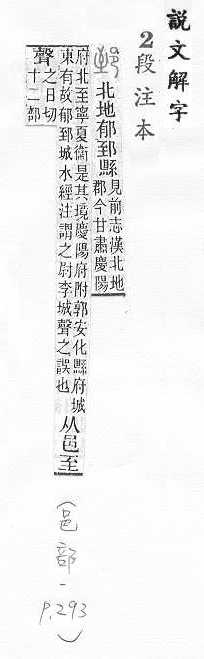 說文解字
2段注本
郅 北地郁郅縣
見前志漢北地
郡今甘肅慶陽
府北至寧夏衛是其境慶陽府附郭安化縣府城
東有故郁郅城水經注謂之尉李城聲之誤也
从邑至
聲
之日切
十二部
(邑部-P.293)